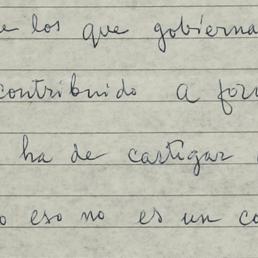 e los que gobierna
contribuido a for
ha de castigar
o eso no es un co